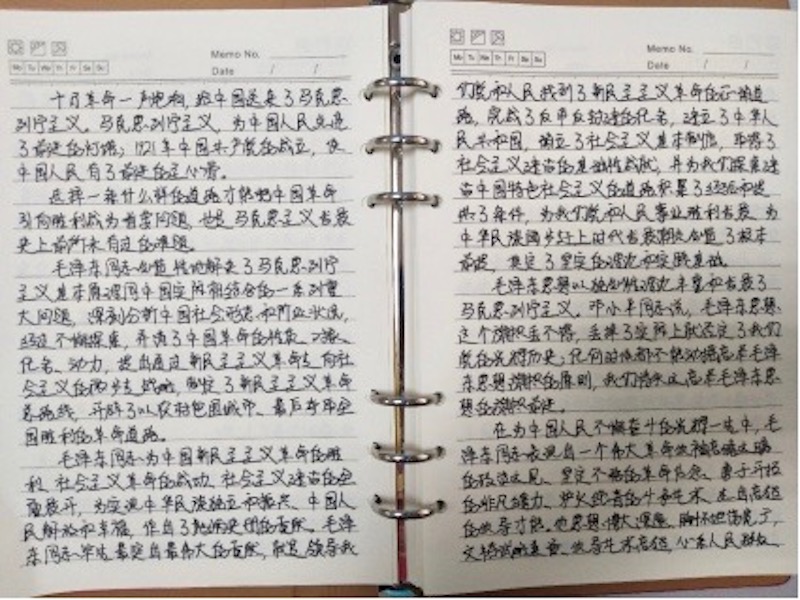 Memo No.
Mo Tu We Th Fr Sa Su
Date / /
十月革命一声炮响，给中国送来了马克思
列宁主义。马克思列宁主义，为中国人民点亮
了前进的灯塔；1921年中国共产党的成立，使
中国人民有了前进的主心骨。
选择一条什么样的道路才能把中国革命
引向胜利成为首要问题，也是马克思主义发展
史上前所未有过的难题。
毛泽东同志创造性地解决了马克思列宁
主义基本原理同中国实际相结合的一系列重
大问题，深刻分析中国社会形态和阶级状况，
经过不懈探索，弄清了中国革命的性质、对象、
任务、动力，提出通过新民主主义革命走向社
会主义的两步走战略，制定了新民主主义革命
总路线，开辟了以农村包围城市、最后夺取全
国胜利的革命道路。
毛泽东同志为中国新民主主义革命的胜
利、社会主义革命的成功、社会主义建设的全
面展开，为实现中华民族独立和振兴、中国人
民解放和幸福，作出了彪炳史册的贡献。毛泽
东同志毕生最突出最伟大的贡献，就是领导我
Memo No.
Mo Tu We Th Fr Sa Su
Date / /
们党和人民找到了新民主主义革命的正确道
路，完成了反帝反封建的任务，建立了中华人
民共和国，确立了社会主义基本制度，取得了
社会主义建设的基础性成就，并为我们探索建
设中国特色社会主义的道路积累了经验和提
供了条件，为我们党和人民事业胜利发展、为
中华民族阔步赶上时代发展潮流创造了根本
前提，奠定了坚实的理论和实践基础。
毛泽东思想以独创性理论丰富和发展了
马克思列宁主义。邓小平同志说，毛泽东思想
这个旗帜丢不得，丢掉了实际上就否定了我们
党的光辉历史；任何时候都不能动摇高举毛泽
东思想旗帜的原则，我们将永远高举毛泽东思
想的旗帜前进。
在为中国人民不懈奋斗的光辉一生中，毛
泽东表现出一个伟大革命领袖高瞻远瞩
的政治远见、坚定不移的革命信念、勇于开拓
的非凡魄力、炉火纯青的斗争艺术、杰出高超
的领导才能。他思想博大深邃、胸怀坦荡宽广，
文韬武略兼备、领导艺术高超，心系人民群众、